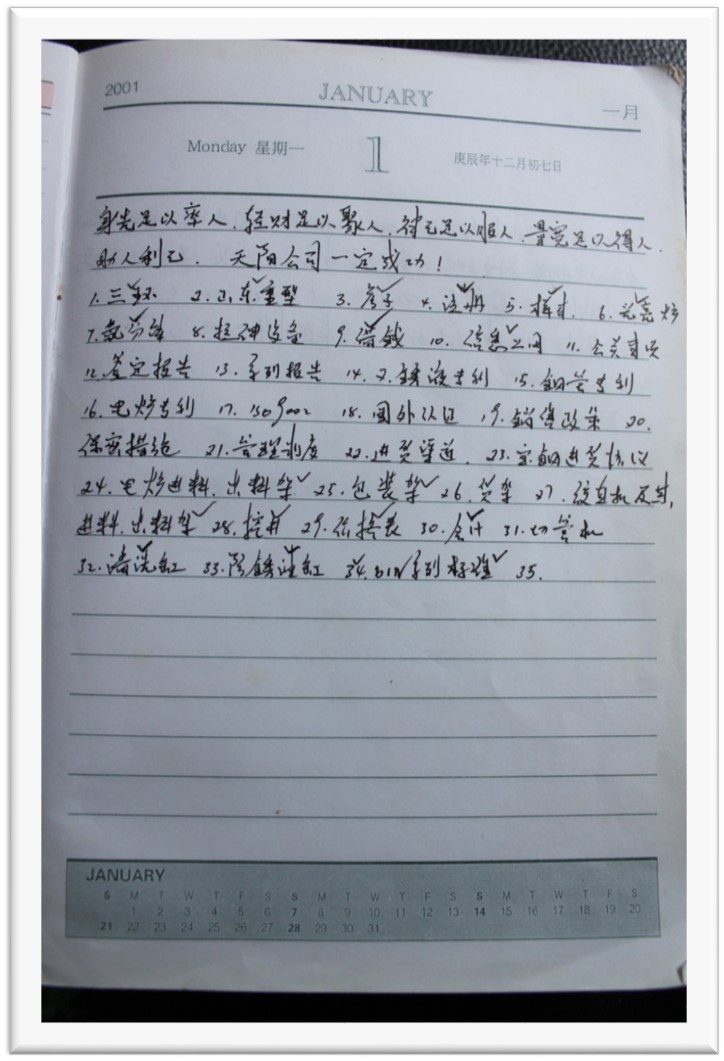 2001 JANUARY 一月
Monday 星期一 1 庚辰年十二月初七日
身先足以率人,轻财足以聚人,律己足以服人,量宽足以得人,
助人利己. 天阳公司一定成功!
1.三环 2.山东重型 3.房子 4.注册 5.样本. 6.光亮炉
7.裁剪 8.拉伸设备 9.借钱 10.信息上网 11.公关事项
12.鉴定报告 13.系列报告 14.专利 15.铜管专利
16.电炉专利 17.ISO9002 18.国外认证 19.销售政策 20.
保密措施 21.管理制度 22.进货渠道. 23.钢进货协议
24.电炉进料.出料架 25.包装架 26.货架 27.
进料.出料架 28. 29.价格表 30.会计 31.切管机
32.清洗缸 33. 34.DIN系列标准 35.
JANUARY
S M T W T F S S M T W T F S S M T W T F S
1 2 3 4 5 6 7 8 9 10 11 12 13 14 15 16 17 18 19 20
21 22 23 24 25 26 27 28 29 30 31